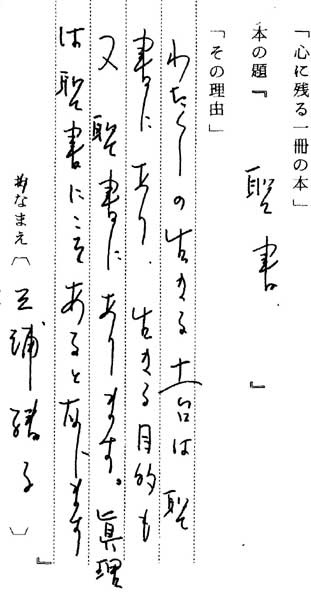 「心に残る一冊の本」
本の題『 聖書 』
「その理由」
わたくしの生きる土台は聖
書にあり、生きる目的も
又聖書にあります。眞理
は聖書にこそあると存じます
おなまえ〔三浦綾子〕
』